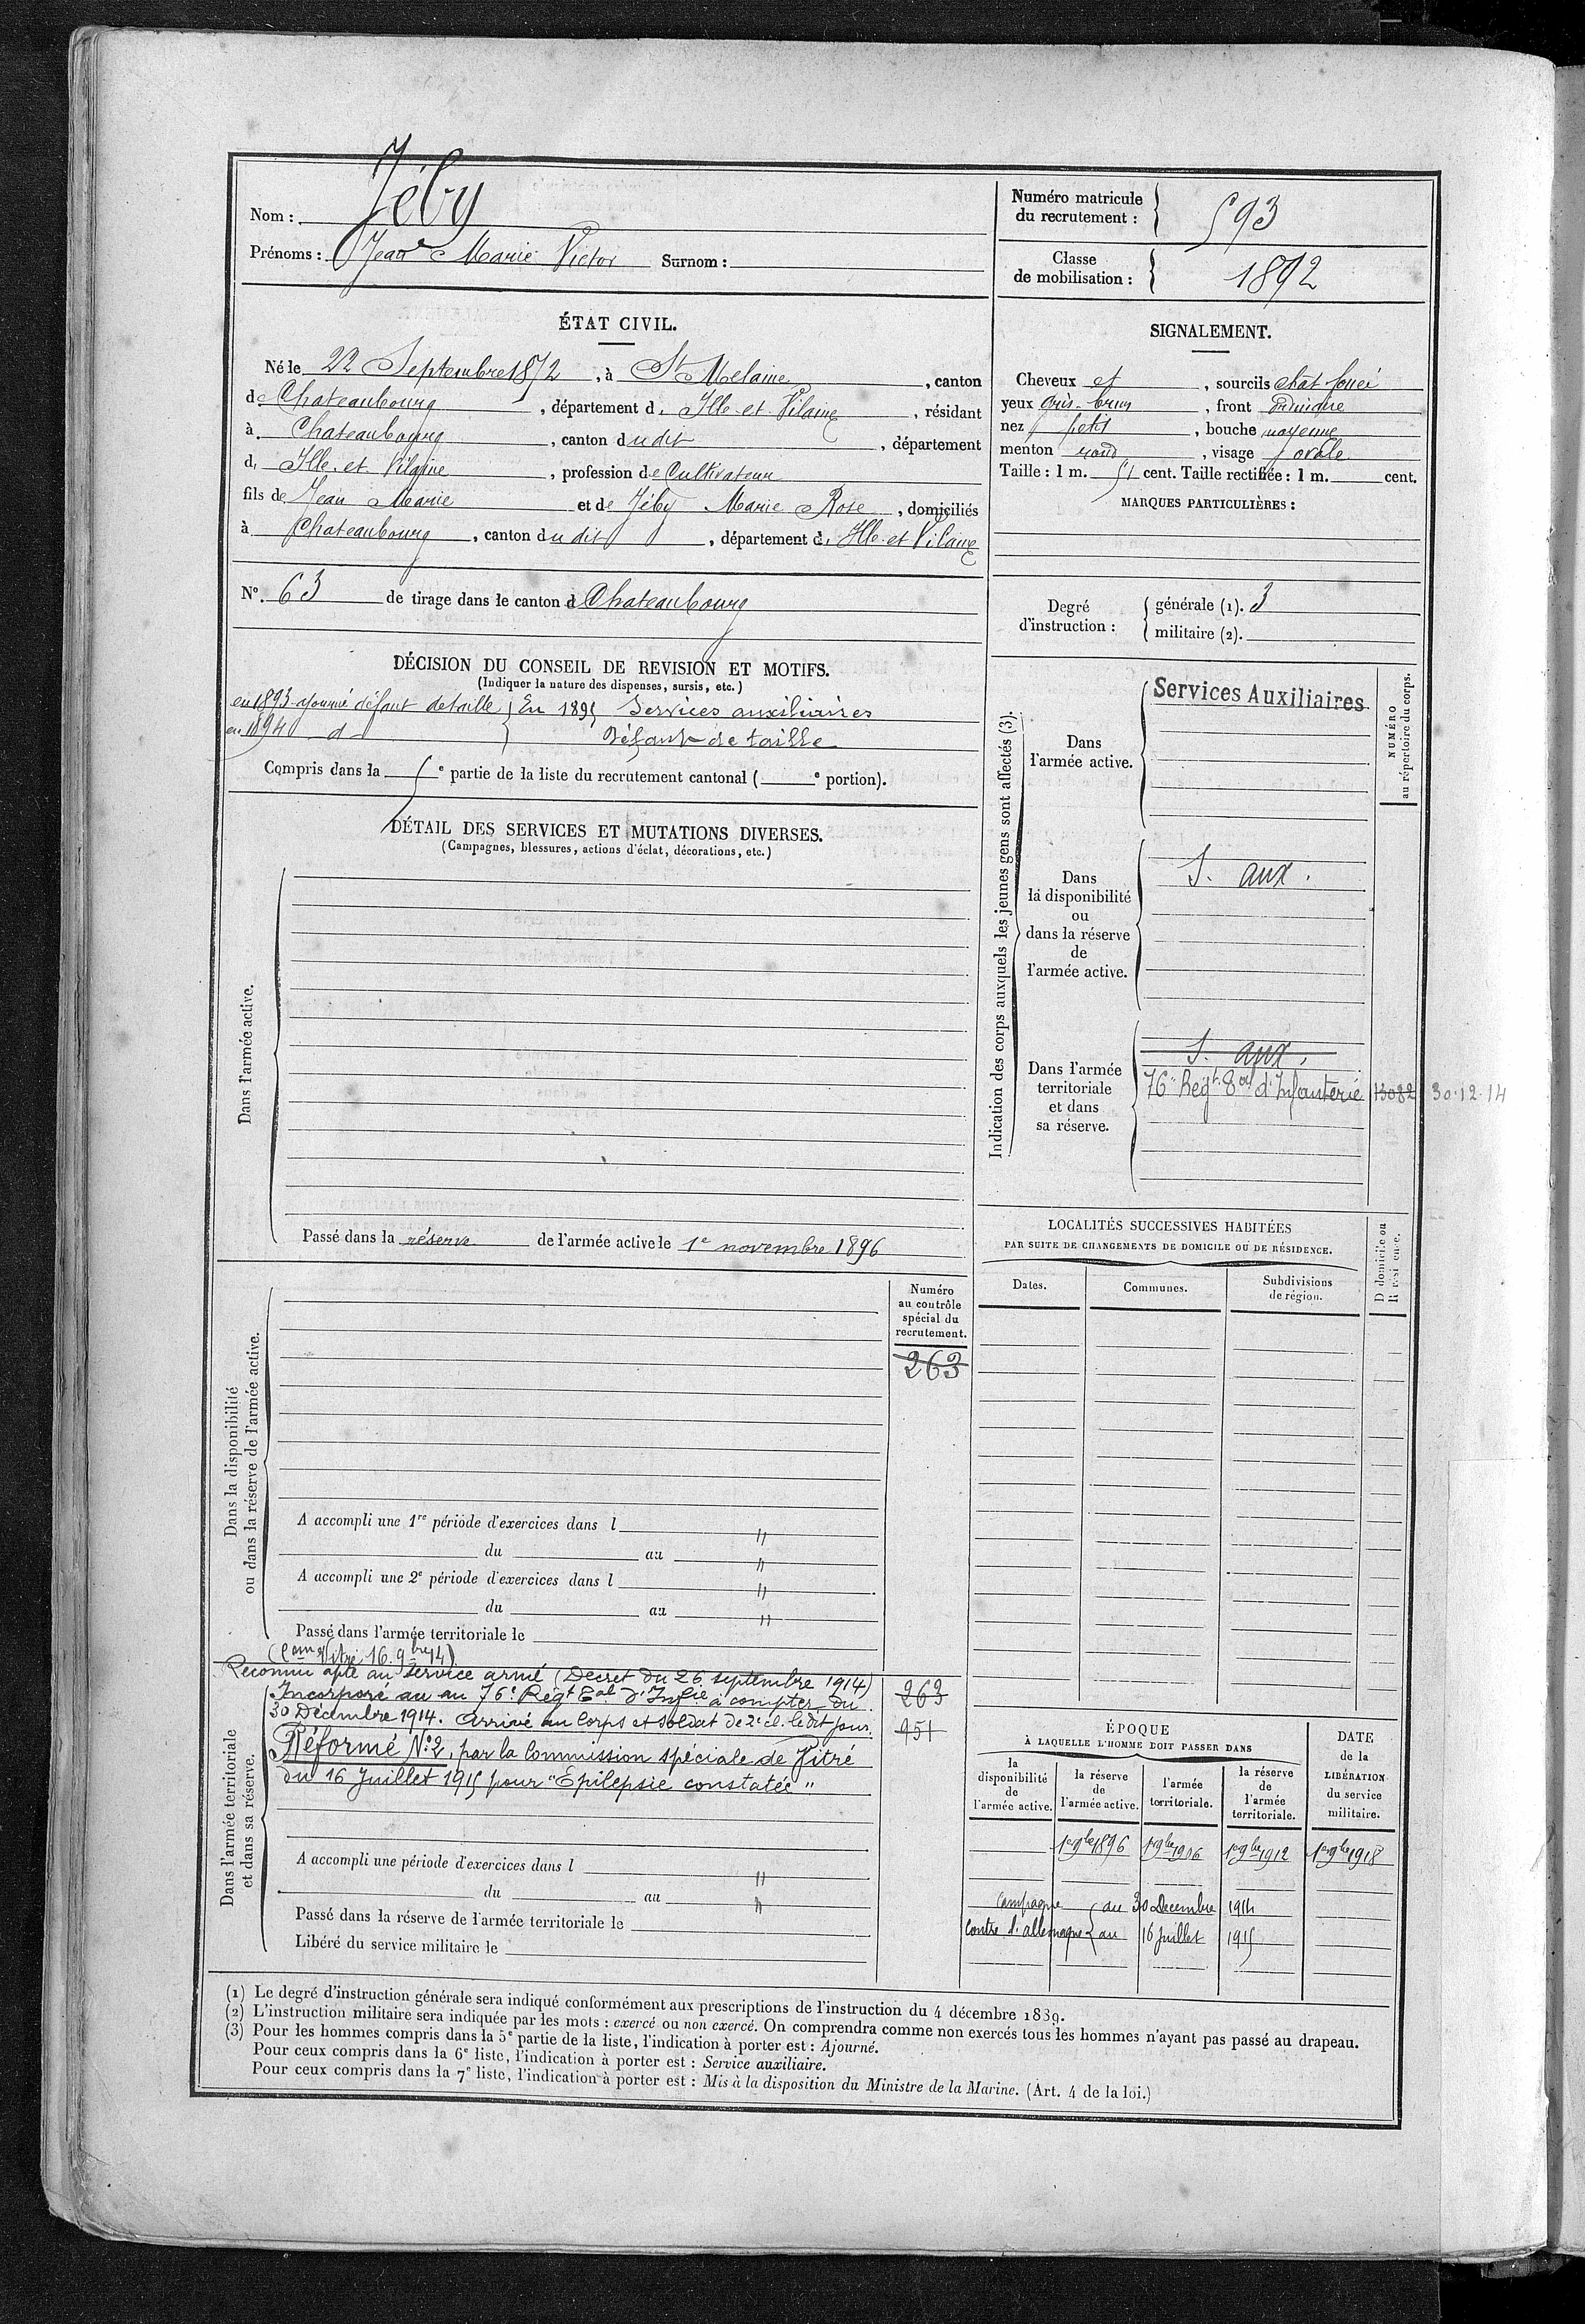 Nom : Jéby
Prénoms : Jean Marie Victor Surnom :
Numéro matricule du recrutement : 593
Classe de mobilisation : 1892
ÉTAT CIVIL.
Né le 22 Septembre 1872, à St Melaine, canton
de Chateaubourg, département d. Ille et Vilaine, résidant
à. Chateaubourg, canton dudit, département
d, Ille et Vilaine, profession de Cultivateur
fils de Jean Marie et de Jéby Marie Rose, domiciliés
à Chateaubourg, canton dudit, département d. Ille et Vilaine
N°. 63 de tirage dans le canton d Chateaubourg
SIGNALEMENT.
Cheveux et, sourcils chât foncé
yeux gris-brun, front ordinaire
nez petit, bouche moyenne
menton rond, visage ovale
Taille : 1 m. 51 cent. Taille rectifiée : 1 m. cent.
MARQUES PARTICULIÈRES :
Degré d'instruction : générale (1). 3
militaire (2).
DÉCISION DU CONSEIL DE REVISION ET MOTIFS.
(Indiquer la nature des dispenses, sursis, etc.)
en 1893 ajourné défaut de taille } En 1895 Services auxiliaires
en 1894 d } Défaut de taille
Compris dans la 5e partie de la liste du recrutement cantonal ( e portion).
DÉTAIL DES SERVICES ET MUTATIONS DIVERSES.
(Campagnes, blessures, actions d'éclat, décorations, etc.)
Dans l'armée active.
Passé dans la réserve de l'armée active le 1e novembre 1896
Indication des corps auxquels les jeunes gens sont affectés (3).
NUMÉRO au répertoire du corps.
Dans l'armée active.
Services Auxiliaires
Dans la disponibilité ou dans la réserve de l'armée active.
S. aux.
Dans l'armée territoriale et dans sa réserve.
S. aux.
76e Regt Eal d'Infanterie 13082 30.12.14
LOCALITÉS SUCCESSIVES HABITÉES
PAR SUITE DE CHANGEMENTS DE DOMICILE OU DE RÉSIDENCE.
Dates. Communes. Subdivisions de région. D domicile ou R résidence.
Dans la disponibilité ou dans la réserve de l'armée active.
Numéro au contrôle spécial du recrutement.
263
A accompli une 1re période d'exercices dans l "
du au "
A accompli une 2e période d'exercices dans l "
du au "
Passé dans l'armée territoriale le
(Com Vitré 16.9bre 14)
Reconnu apte au service armé (Decret du 26 septembre 1914)
Incorporé au au 76e Régt Eal d'Infie à compter du
30 Décembre 1914. Arrivé au Corps et soldat de 2e cl. ledit jour.
Réformé N°2, par la Commission spéciale de Vitré
du 16 Juillet 1915 pour "Epilepsie constatée"
263
951
Dans l'armée territoriale et dans sa réserve.
A accompli une période d'exercices dans l "
du au "
Passé dans la réserve de l'armée territoriale le
Libéré du service militaire le
ÉPOQUE
À LAQUELLE L'HOMME DOIT PASSER DANS
la disponibilité de l'armée active. la réserve de l'armée active. l'armée territoriale. la réserve de l'armée territoriale.
DATE de la LIBÉRATION du service militaire.
1er 9bre 1896 1er 9bre 1906 1er 9bre 1912 1er 9bre 1918
Campagne { du 30 Decembre 1914
contre l'allemagne { au 16 Juillet 1915
(1) Le degré d'instruction générale sera indiqué conformément aux prescriptions de l'instruction du 4 décembre 1889.
(2) L'instruction militaire sera indiquée par les mots : exercé ou non exercé. On comprendra comme non exercés tous les hommes n'ayant pas passé au drapeau.
(3) Pour les hommes compris dans la 5e partie de la liste, l'indication à porter est : Ajourné.
Pour ceux compris dans la 6e liste, l'indication à porter est : Service auxiliaire.
Pour ceux compris dans la 7e liste, l'indication à porter est : Mis à la disposition du Ministre de la Marine. (Art. 4 de la loi.)